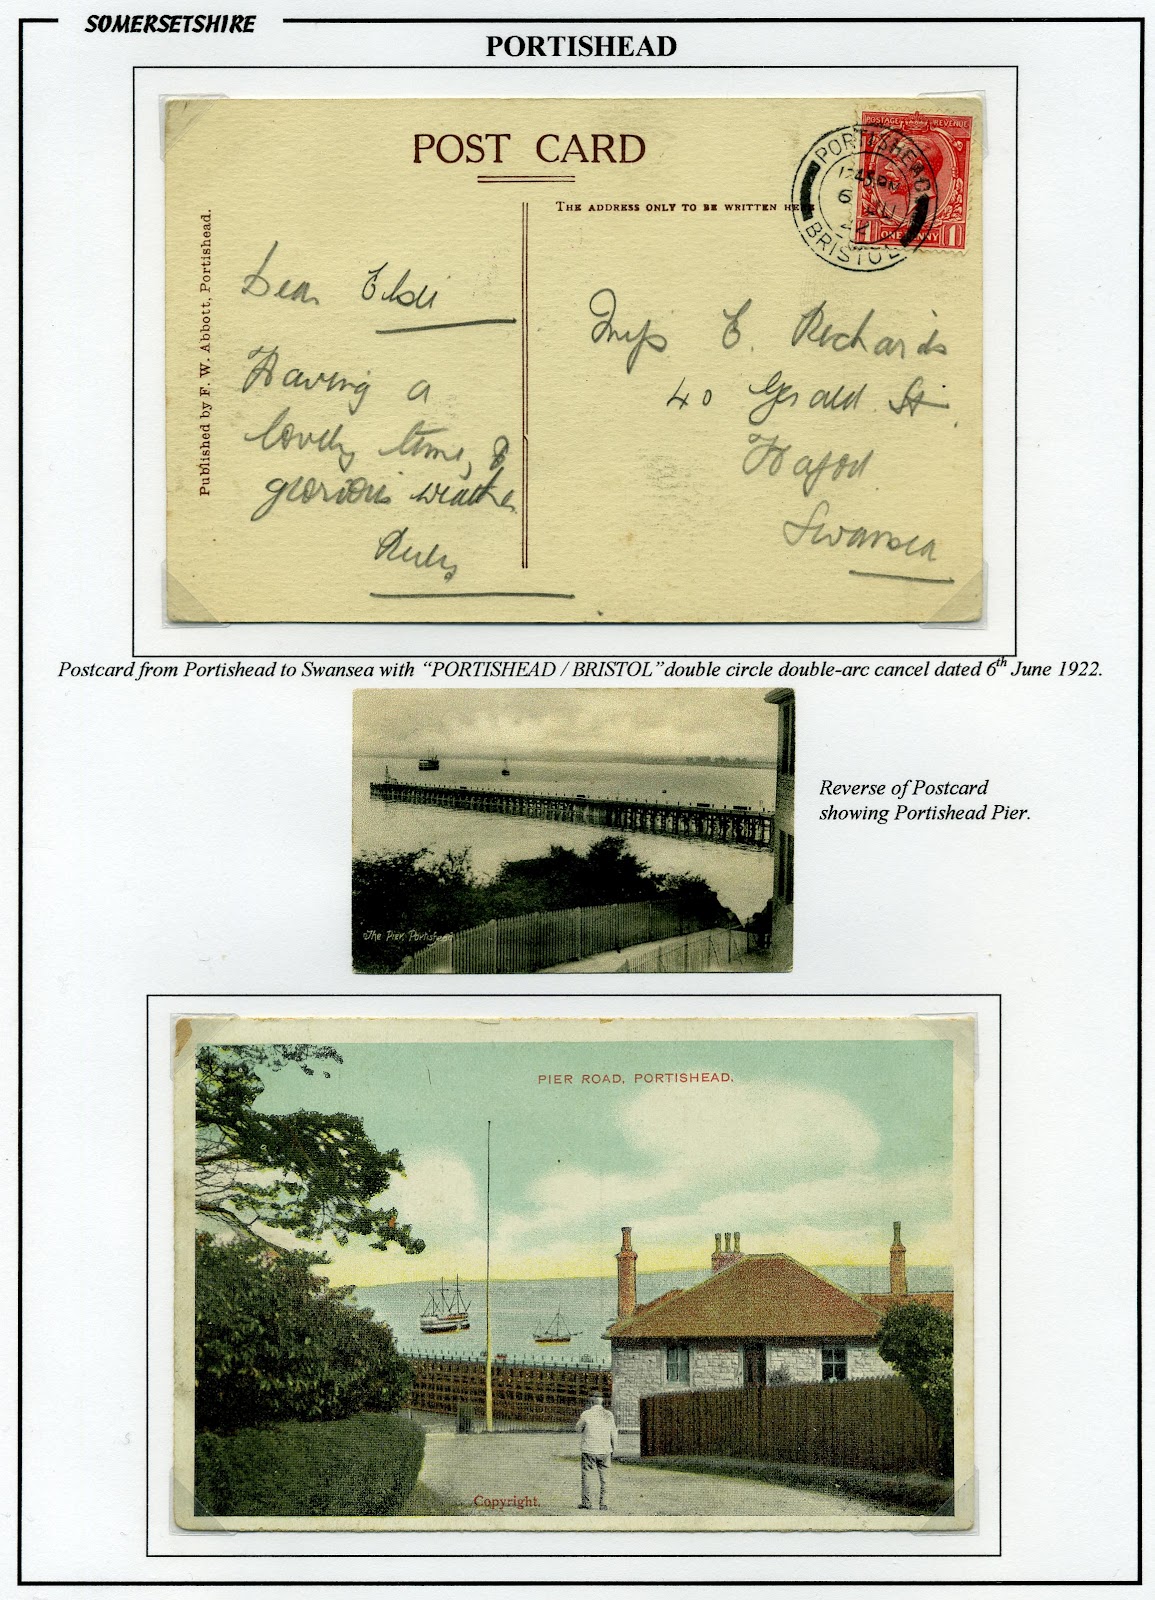 SOMERSETSHIRE
PORTISHEAD
POST CARD
THE ADDRESS ONLY TO BE WRITTEN HERE
POSTAGE REVENUE
1 ONE PENNY 1
PORTISHEAD
12.45 PM
6 JU
22
BRISTOL
Published by F. W. Abbott, Portishead.
Dear Elsie
Having a
lovely time, &
glorious weather
Ruby
Miss E. Richards
40 Gerald St.
Hafod.
Swansea
Postcard from Portishead to Swansea with “PORTISHEAD / BRISTOL” double circle double-arc cancel dated 6th June 1922.
The Pier, Portishead
Reverse of Postcard
showing Portishead Pier.
PIER ROAD, PORTISHEAD.
Copyright.